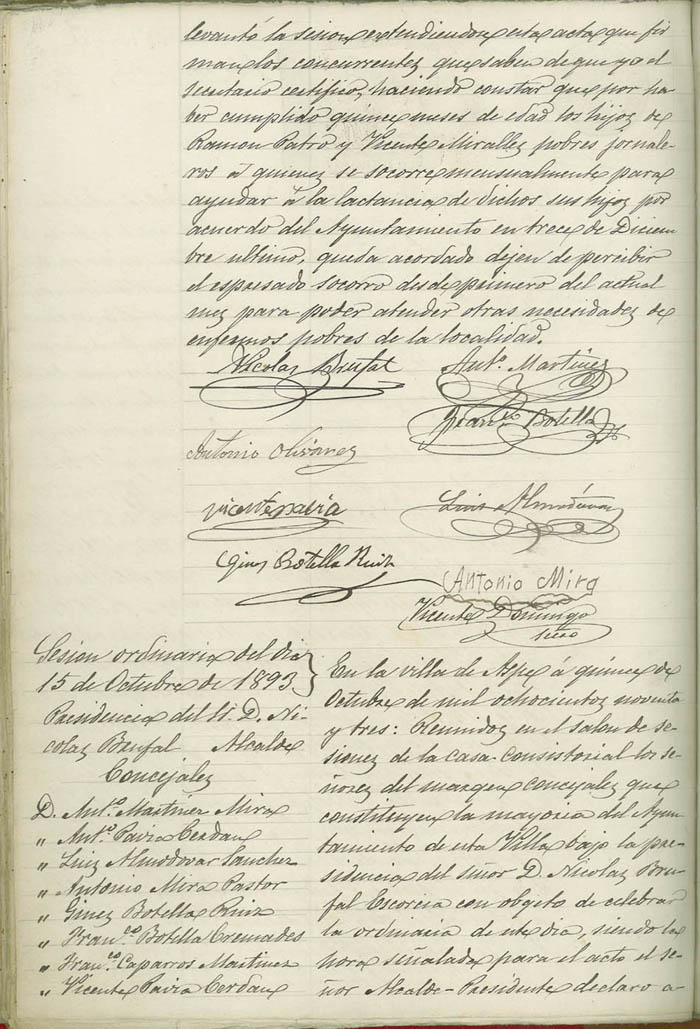 levantó la sesion extendiendose esta acta que fir
man los concurrentes que saben de que yo el
secretario certifico, haciendo constar que por ha
ber cumplido quince meses de edad los hijos de
Ramon Patro y Vicente Miralles pobres jornale-
ros á quienes se socorre mensualmente para
ayudar á la lactancia de dichos sus hijos por
acuerdo del Ayuntamiento en trece de Diciem
bre ultimo, queda acordado dejen de percibir
el espresado socorro desde primero del actual
mes para poder atender otras necesidades de
enfermos pobres de la localidad.
Nicolas Brufal Ant.º Martinez
Fran.co Botella
Antonio Olivares
Vicente Pavia Luis Almodovar
Gines Botella Ruiz
Antonio Mira
Vicente Domingo
srio
Sesion ordinaria del dia
15 de Octubre de 1893
Presidencia del Sr. D. Ni-
colas Brufal Alcalde
Concejales
D. Ant.º Martinez Mira
" Ant.º Pavia Cerdan
" Luis Almodovar Sanchez
" Antonio Mira Pastor
" Gines Botella Ruiz
" Fran.co Botella Cremades
" Fran.co Caparros Martinez
" Vicente Pavia Cerdan
En la villa de Aspe á quince de
Octubre de mil ochocientos noventa
y tres: Reunidos en el salon de se-
siones de la casa consistorial los se-
ñores del margen concejales que
constituyen la mayoria del Ayun
tamiento de esta Villa bajo la pre-
sidencia del señor D. Nicolas Bru-
fal Escorcia con obgeto de celebrar
la ordinaria de este dia, siendo la
hora señalada para el acto el se-
ñor Alcalde-Presidente declaro a-